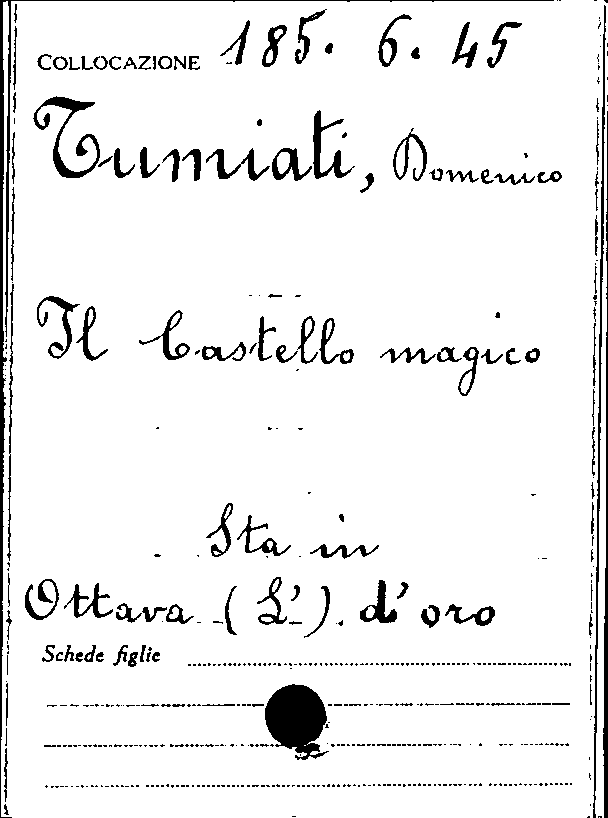 COLLOCAZIONE 185. 6. 45
Tumiati, Domenico
Il Castello magico
Sta in
Ottava (L') d'oro
Schede figlie